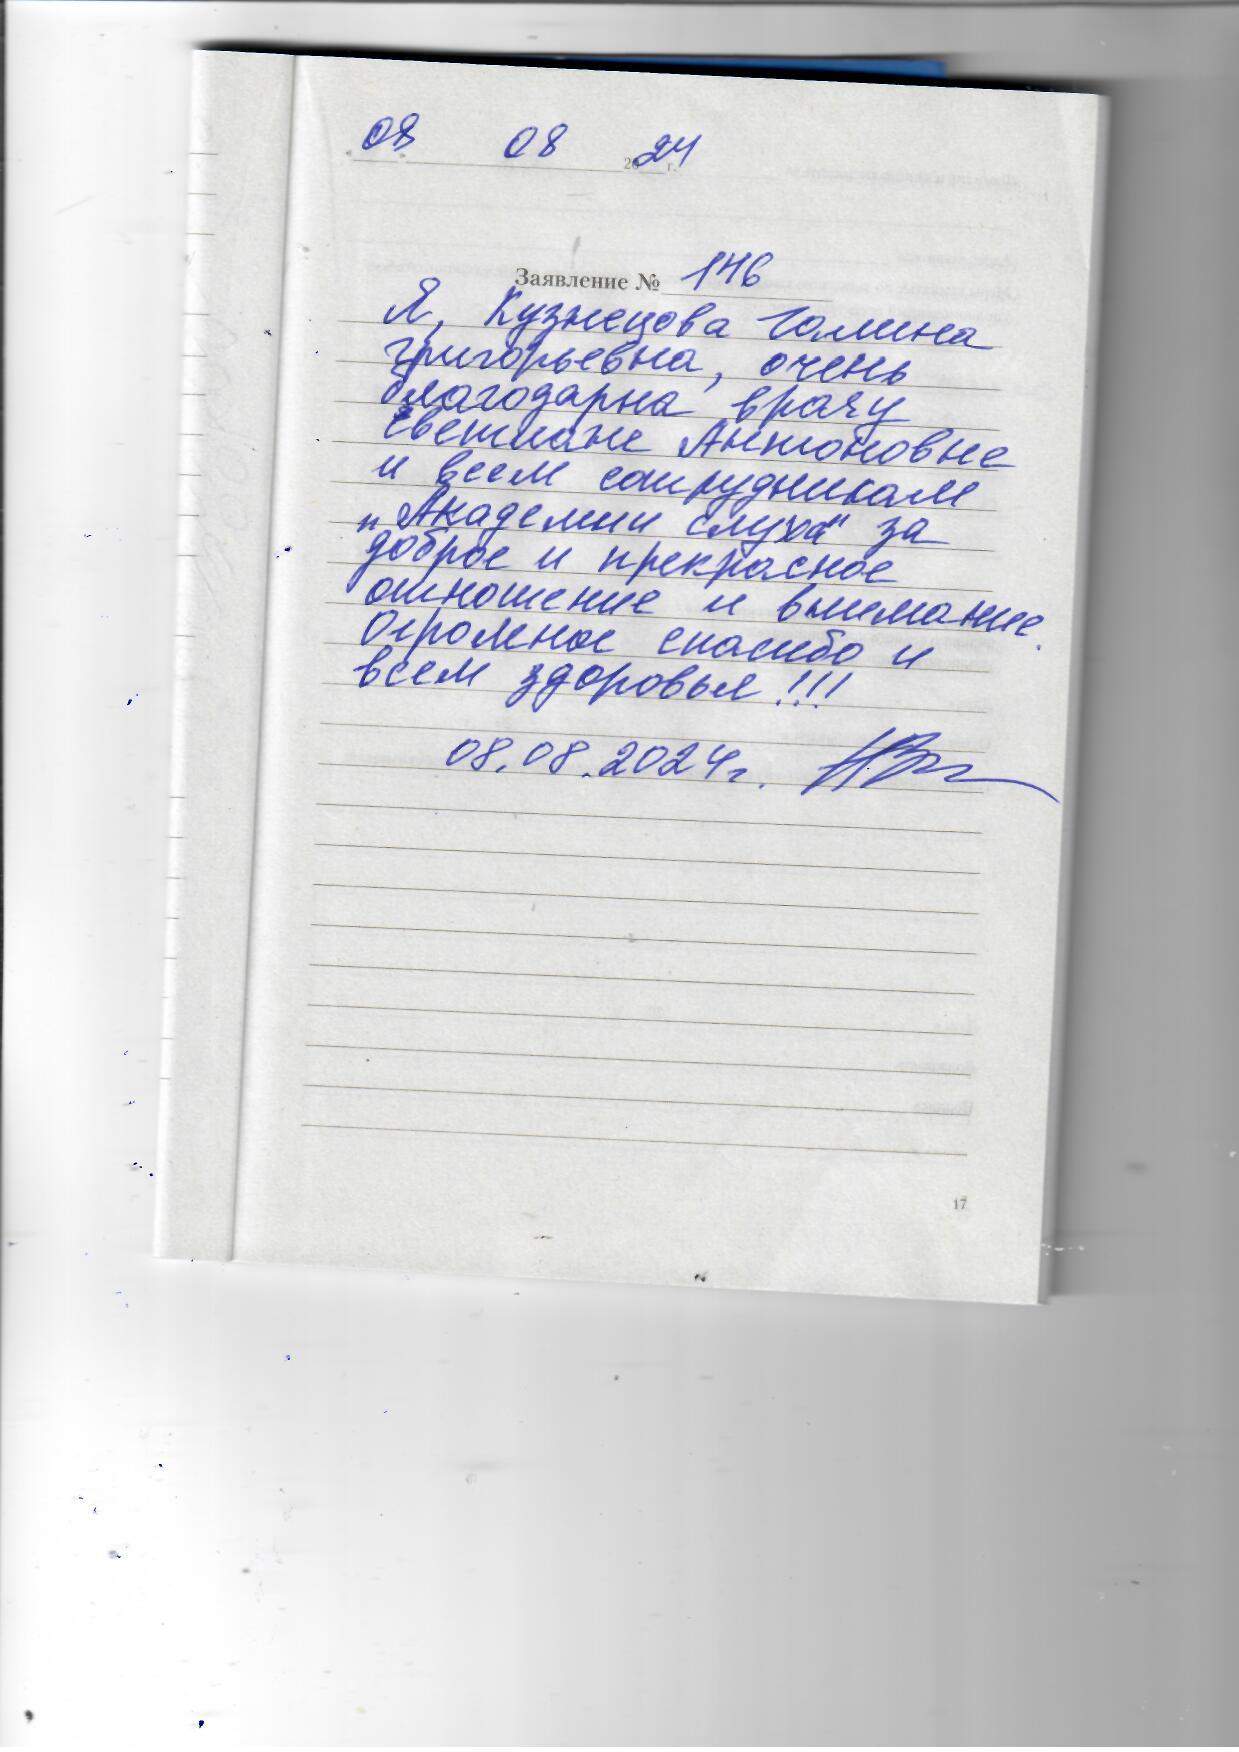 08 08 2024 г.
Заявление № 146
Я, Кузнецова Галина
Григорьевна, очень
благодарна врачу
Светлане Антоновне
и всем сотрудникам
"Академии слуха" за
доброе и прекрасное
отношение и внимание.
Огромное спасибо и
всем здоровья!!!
08.08.2024г.
17